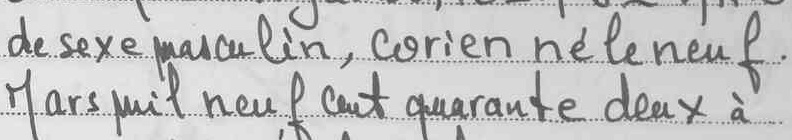 de sexe masculin, corien né le neuf.
Mars mil neuf cent quarante deux à